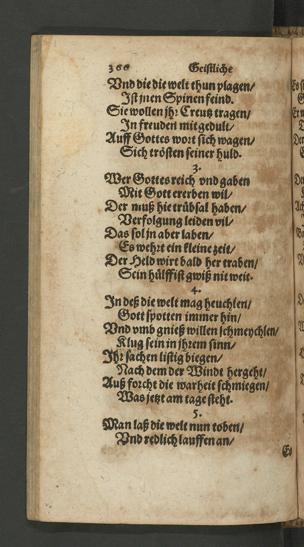 366 Geistliche
Vnd die die welt thun plagen/
Ist jnen Spinen feind.
Sie wollen jhr Creutz tragen/
In freuden mit gedult/
Auff Gottes wort sich wagen/
Sich trösten seiner huld.
3.
Wer Gottes reich vnd gaben
Mit Gott ererben wil/
Der muß hie trübsal haben/
Verfolgung leiden vil/
Das sol jn aber laben/
Es wehrt ein kleine zeit/
Der Held wirt bald her traben/
Sein hülff ist gwiß nit weit.
4.
In deß die welt mag heuchlen/
Gott spotten immer hin/
Vnd vmb gnieß willen schmeychlen/
Klug sein in jhrem sinn/
Ihr sachen listig biegen/
Nach dem der Windt hergeht/
Auß forcht die warheit schmiegen/
Was jetzt am tage steht.
5.
Man laß die welt nun toben/
Vnd redlich lauffen an/